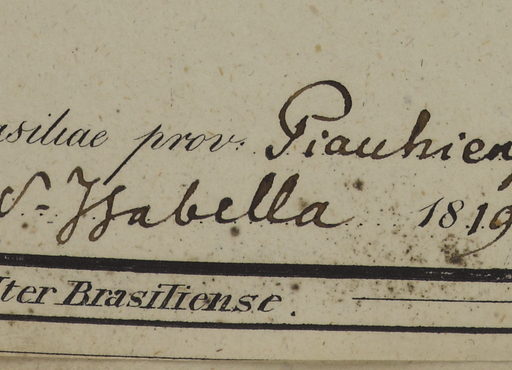 asiliae prov. Piauhien
S. Isabella 1819
Iter Brasiliense.